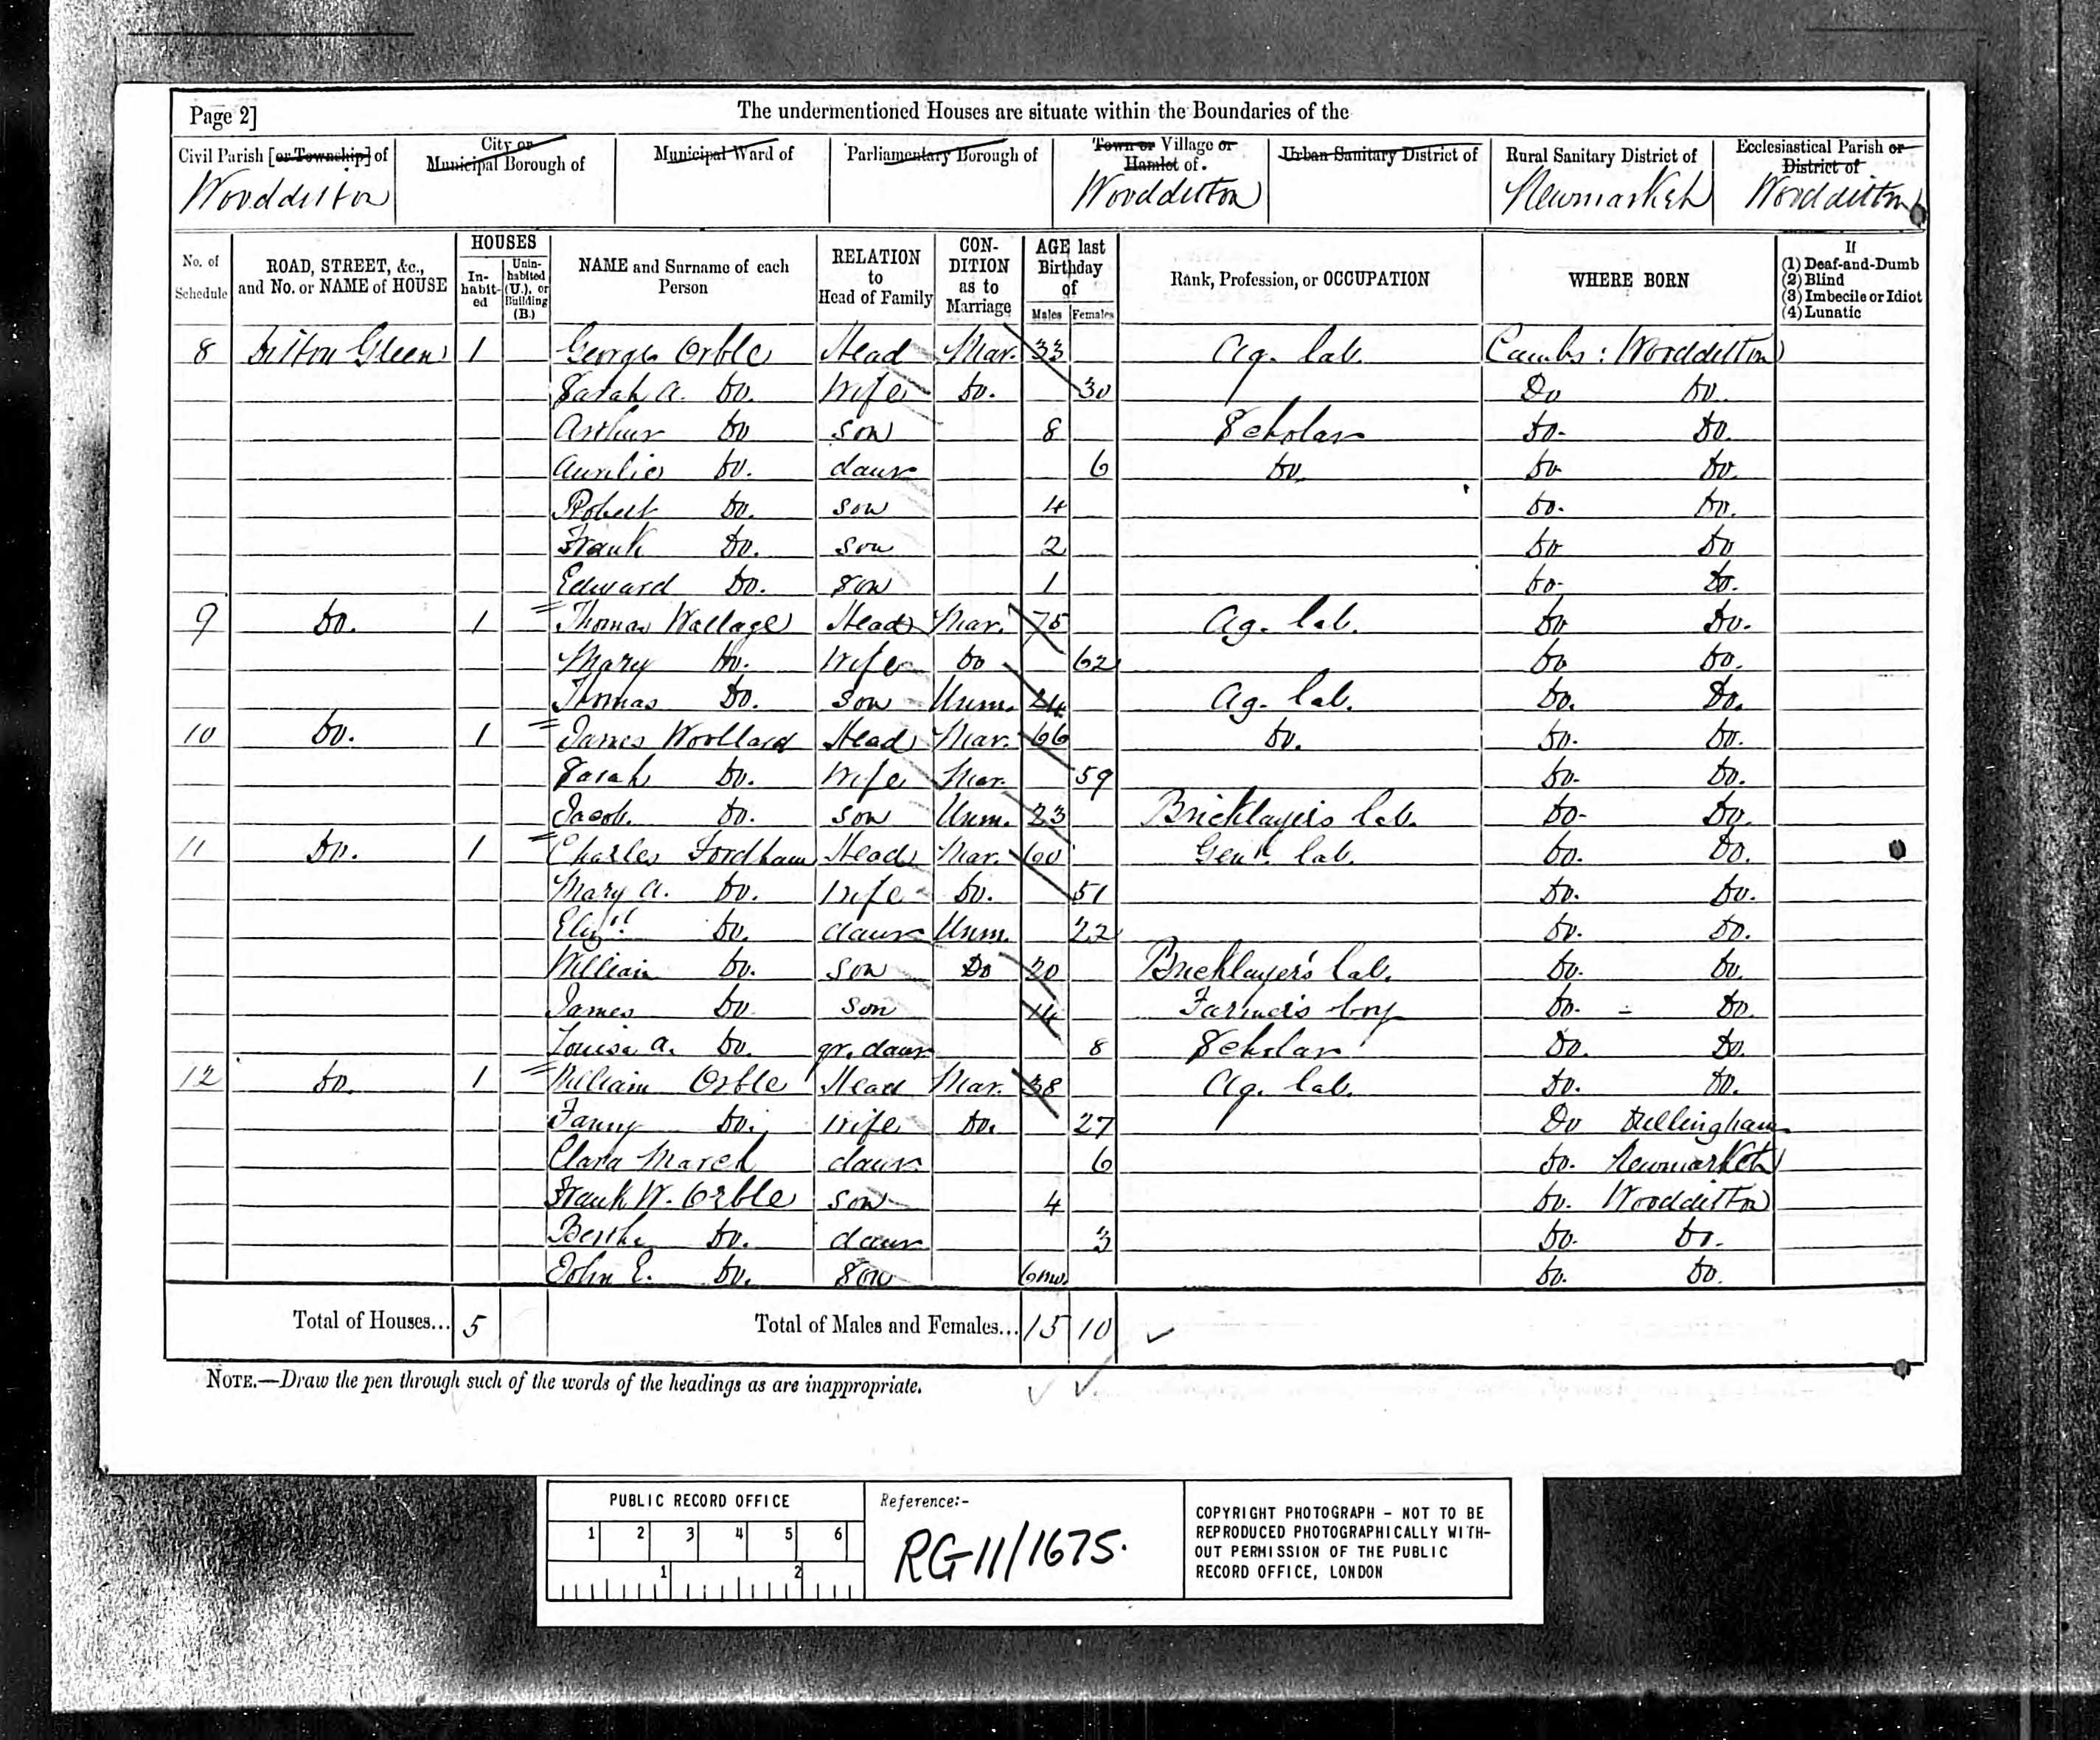 Page 2]
The undermentioned Houses are situate within the Boundaries of the
Civil Parish [or Township] of
City or Municipal Borough of
Municipal Ward of
Parliamentary Borough of
Town or Village or Hamlet of
Urban Sanitary District of
Rural Sanitary District of
Ecclesiastical Parish or District of
Woodditton Woodditton Newmarket Woodditton
No. of Schedule
ROAD, STREET, &c., and No. or NAME of HOUSE
HOUSES
Inhabited
Uninhabited (U.), or Building (B.)
NAME and Surname of each Person
RELATION to Head of Family
CONDITION as to Marriage
AGE last Birthday of
Males Females
Rank, Profession, or OCCUPATION
WHERE BORN
If
(1) Deaf-and-Dumb
(2) Blind
(3) Imbecile or Idiot
(4) Lunatic
8 Ditton Green 1 George Orble Head Mar. 33 Ag. lab. Cambs: Woodditton
Sarah A. Do. Wife Do. 30 Do Do.
Arthur Do son 8 Scholar Do. Do.
Aurelia Do. daur 6 Do. Do Do.
Robert Do. son 4 Do. Do.
Frank Do. son 2 Do Do
Edward Do. son 1 Do. Do.
9 Do. 1 Thomas Wallage Head Mar. 75 Ag. lab. Do Do.
Mary Do. Wife Do 62 Do Do.
Thomas Do. son Unm. 24 Ag. lab. Do. Do.
10 Do. 1 James Woollard Head Mar. 66 Do. Do. Do.
Sarah Do. Wife Mar. 59 Do. Do.
Jacob Do. son Unm. 23 Bricklayer's lab. Do. Do.
11 Do. 1 Charles Fordham Head Mar. 60 Genl. lab. Do. Do.
Mary A. Do. Wife Do. 51 Do. Do.
Elizth Do. daur Unm. 22 Do. Do.
William Do. son Do 20 Bricklayer's lab. Do. Do.
James Do son 14 Farmer's boy Do. Do.
Louisa A. Do. gr. daur 8 Scholar Do. Do.
12 Do. 1 William Orble Head Mar. 38 Ag. lab. Do. Do.
Fanny Do. Wife Do. 27 Do Dullingham
Clara March daur 6 Do. Newmarket
Frank W. Orble son 4 Do. Woodditton
Bertha Do. daur 3 Do. Do.
John E. Do. son 6mo. Do. Do.
Total of Houses... 5 Total of Males and Females... 15 10
NOTE.—Draw the pen through such of the words of the headings as are inappropriate.
PUBLIC RECORD OFFICE
1 2 3 4 5 6
1 2
Reference:-
RG11/1675.
COPYRIGHT PHOTOGRAPH - NOT TO BE
REPRODUCED PHOTOGRAPHICALLY WITH-
OUT PERMISSION OF THE PUBLIC
RECORD OFFICE, LONDON